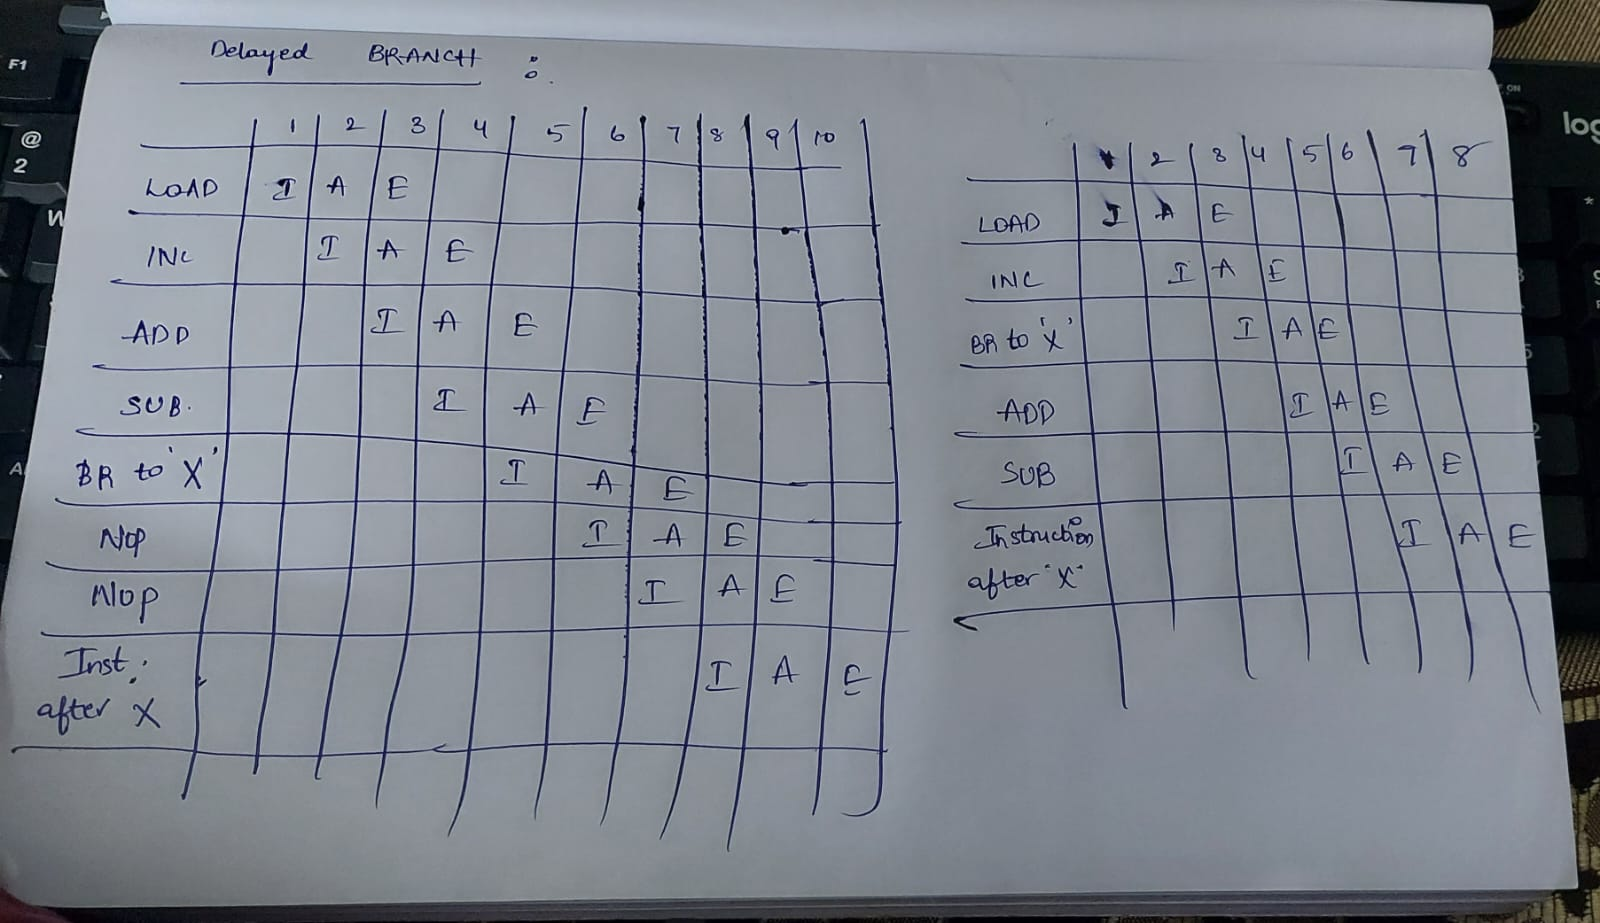 Delayed BRANCH :
1 2 3 4 5 6 7 8 9 10
LOAD I A E
INC I A E
ADD I A E
SUB. I A E
BR to 'X' I A E
Nop I A E
Nop I A E
Inst. I A E
after X
1 2 3 4 5 6 7 8
LOAD I A E
INC I A E
BR to 'X' I A E
ADD I A E
SUB I A E
Instruction I A E
after "X"
F1
@
2
W
A
ON
log
*